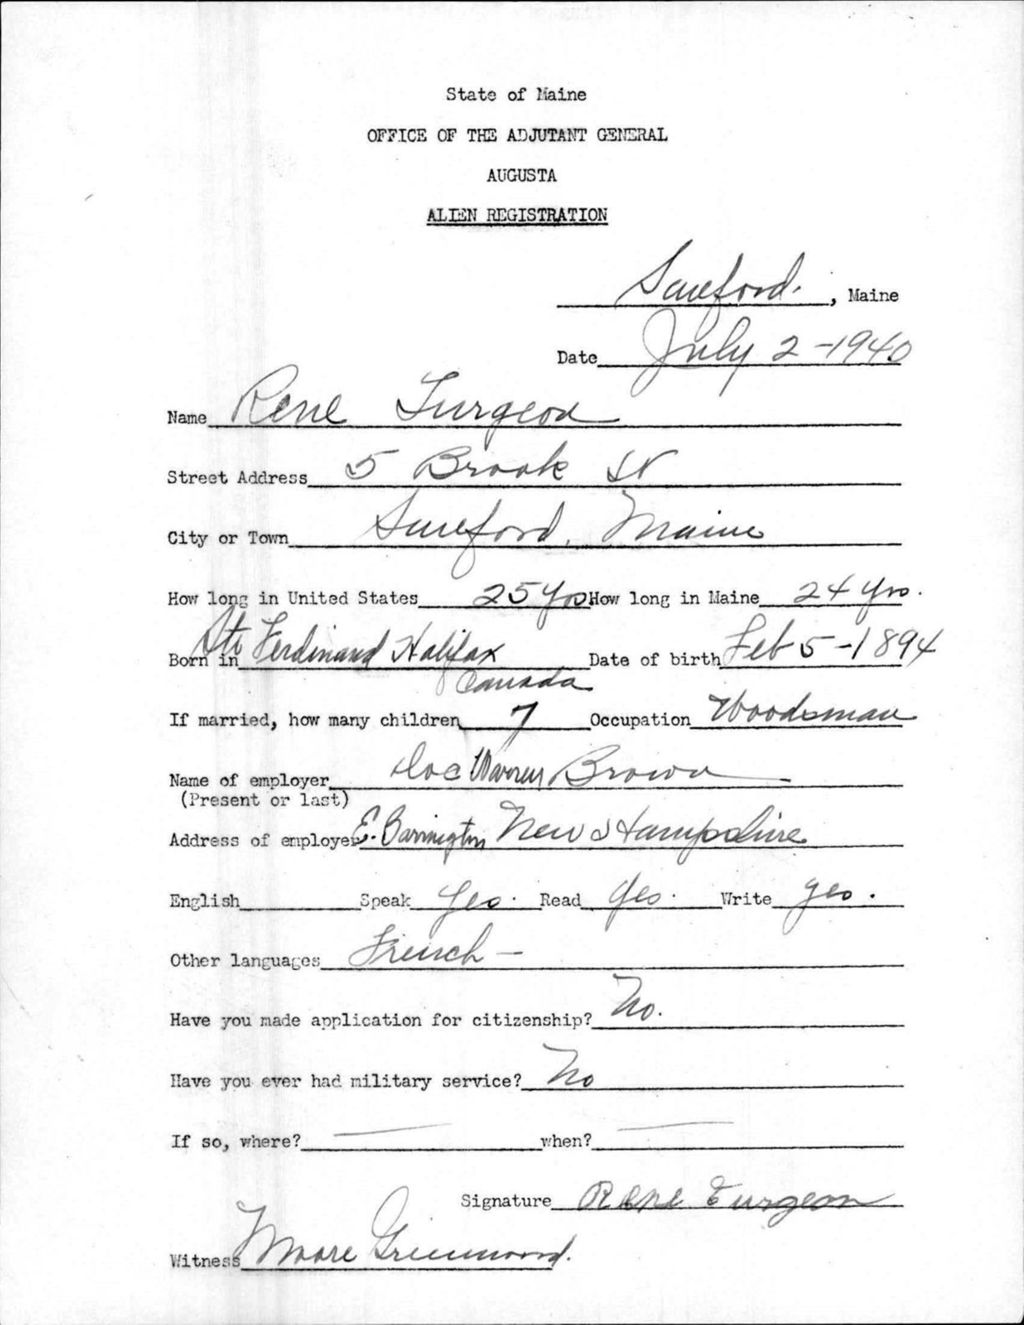 State of Maine
OFFICE OF THE ADJUTANT GENERAL
AUGUSTA
ALIEN REGISTRATION
Sanford, Maine
Date July 2-1940
Name Rene Turgeon
Street Address 5 Brook St
City or Town Sanford, Maine
How long in United States 25 Yrs How long in Maine 24 Yrs.
Born in Ste Ferdinand Halifax Canada Date of birth Feb 5-1894
If married, how many children 7 Occupation Woodsman
Name of employer Warren Brown
(Present or last)
Address of employer E. Barrington New Hampshire
English Speak Yes. Read Yes. Write Yes.
Other languages French -
Have you made application for citizenship? No.
Have you ever had military service? No
If so, where? when?
Signature Rene Turgeon
Witness Moore Greenwood.